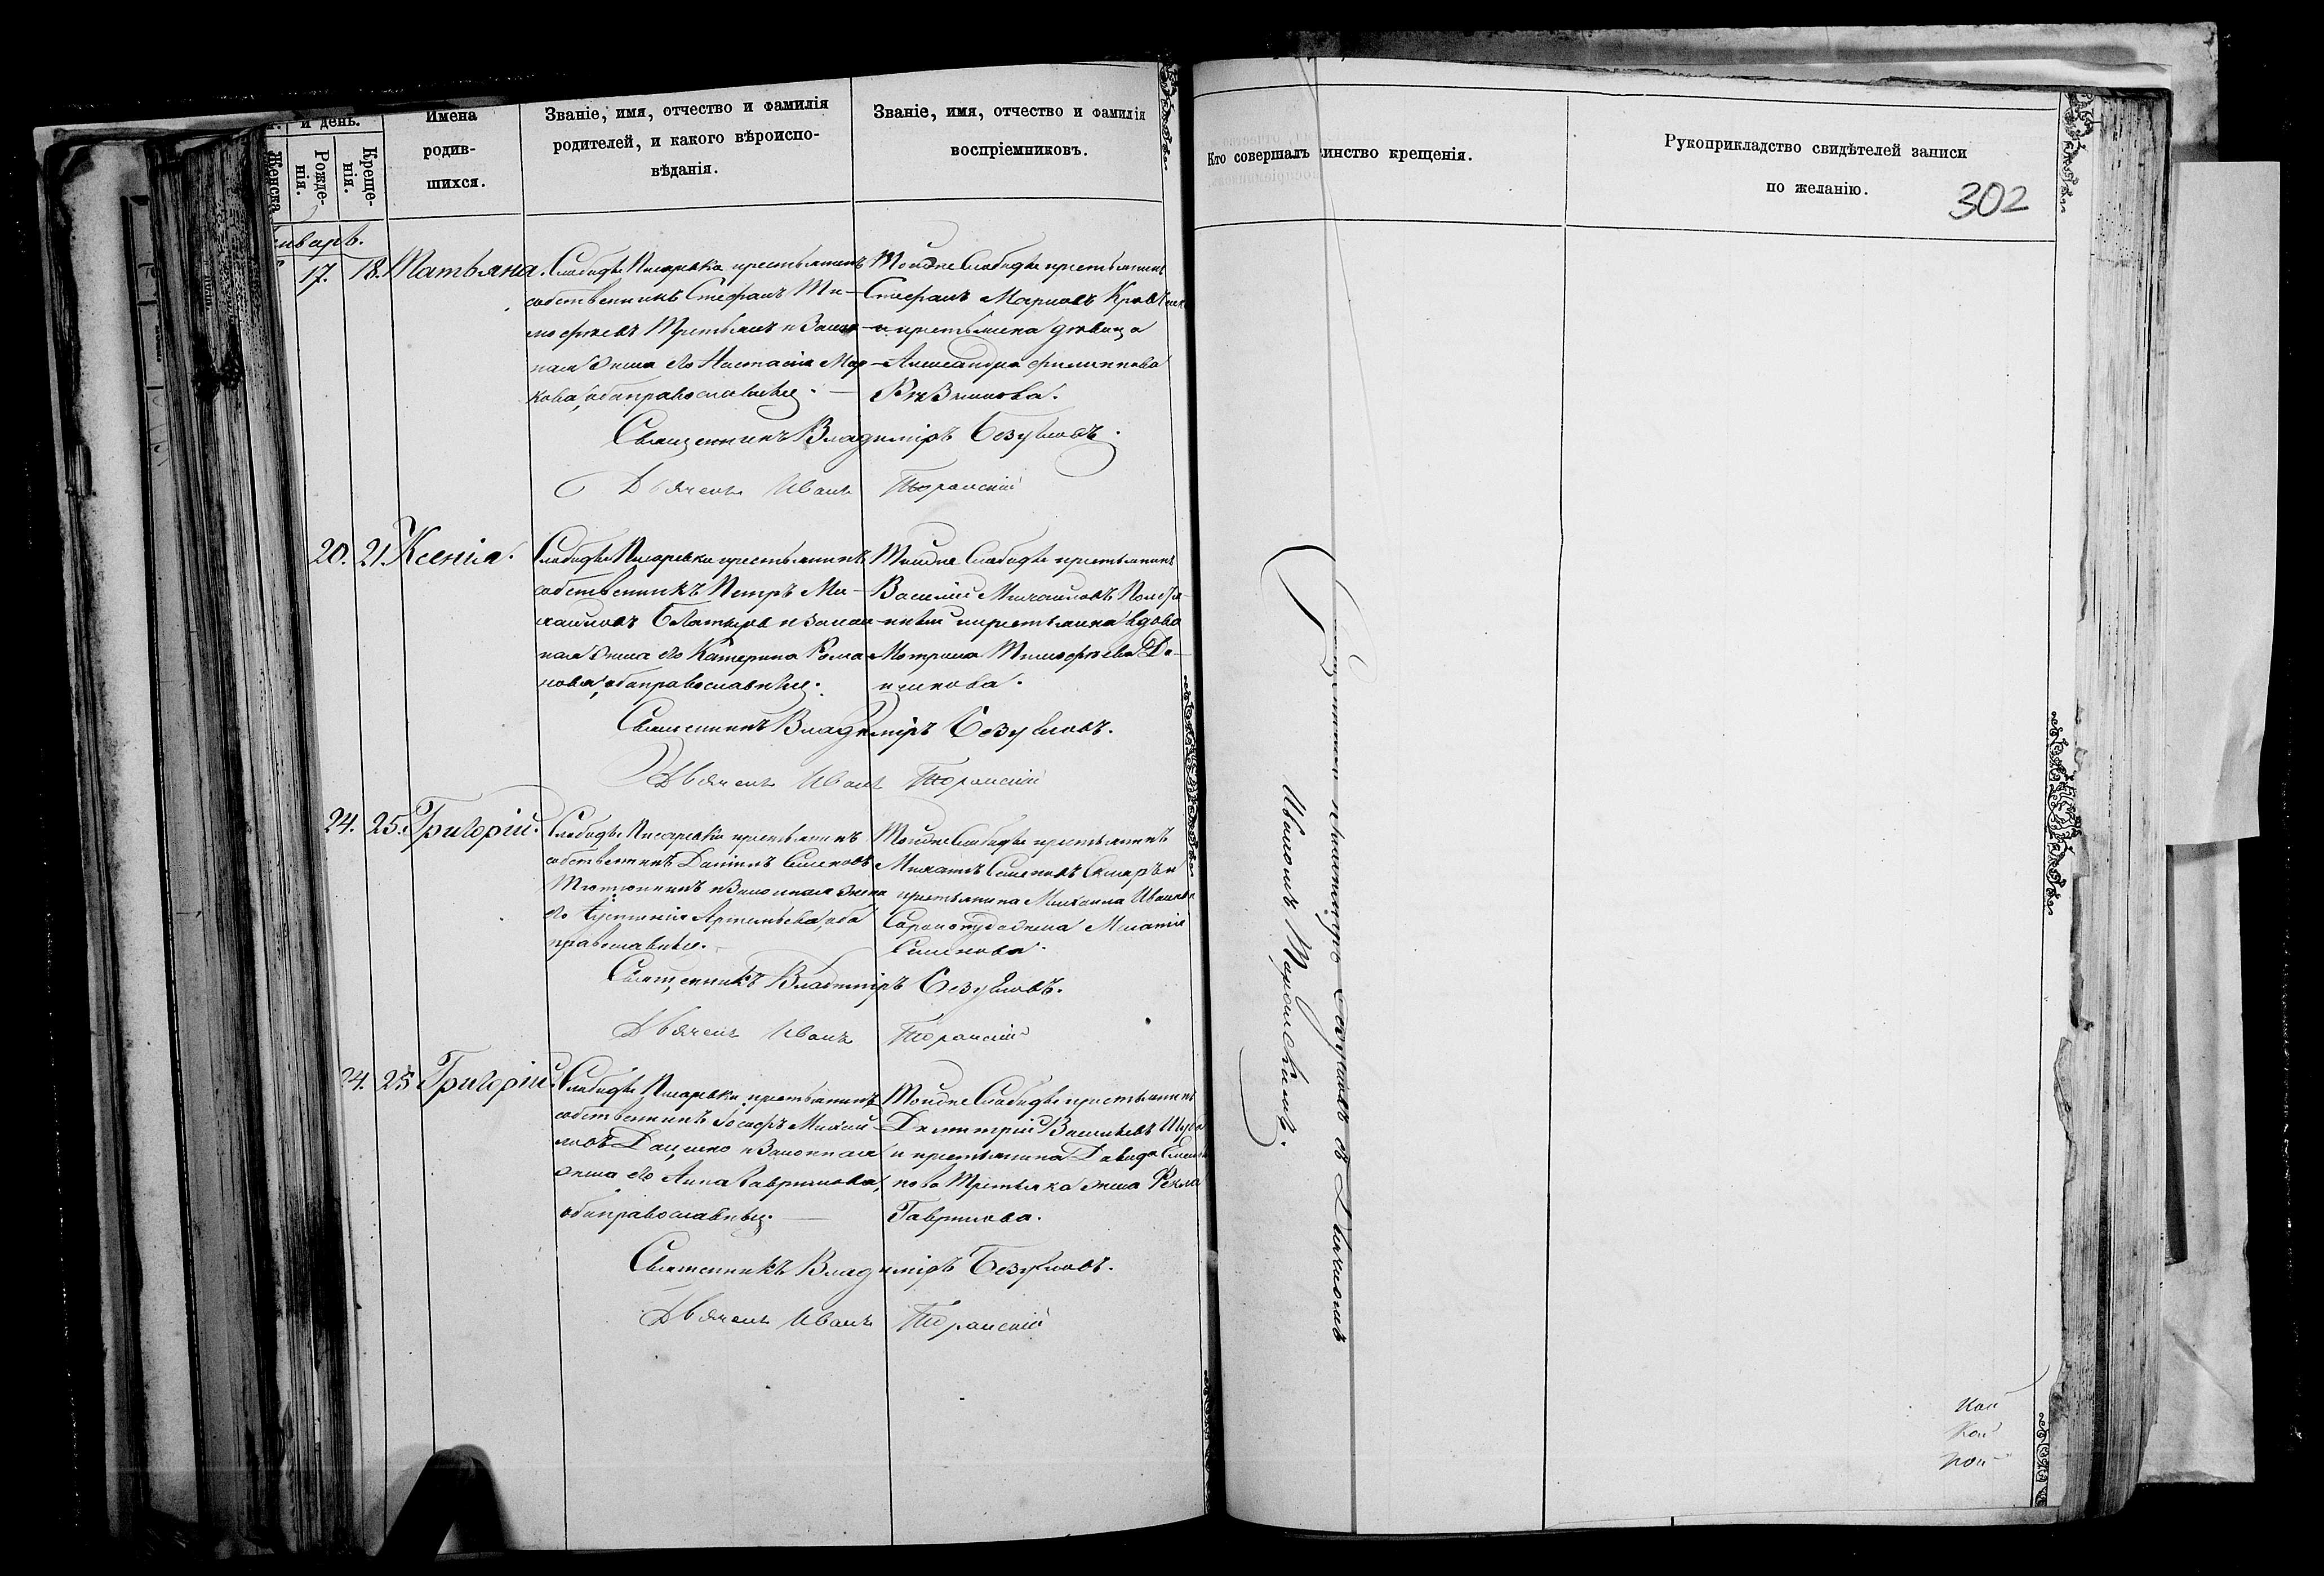 и день.
Женска
Рожде-
нія.
Креще-
нія.
Имена
родив-
шихся.
Званіе, имя, отчество и фамилія
родителей, и какого вѣроиспо-
вѣданія.
Званіе, имя, отчество и фамилія
воспріемниковъ.
Кто совершалъ
инство крещенія.
Рукоприкладство свидѣтелей записи
по желанію.
302
нварь.
17. 18. Татьяна.
Слободы Писаревки крестьянинъ
собственникъ Стефанъ Ти-
моѳеевъ Третьякъ и закон-
ная жена его Настасія Мар-
кова, оба православные.
Тойже Слободы крестьянинъ
Стефанъ Марковъ
и крестьянка дѣвица
Александра Филиппова
Священникъ Владиміръ Безугловъ.
Дьячекъ Иванъ Торанскій
20. 21. Ксенія.
Слободы Писаревки крестьянинъ
собственникъ Петръ Ми-
хайловъ и закон-
ная жена его Катерина Рома-
нова, оба православные.
Тойже Слободы крестьянинъ
Василій Михайловъ
и крестьянка вдова
Матрона Тимоѳеева
Священникъ Владиміръ Безугловъ.
Дьячекъ Иванъ Торанскій
24. 25. Григорій.
Слободы Писаревки крестьянинъ
собственникъ Даніилъ Семеновъ
Тютюнникъ и законная жена
его Устинія Артемьева, оба
православные.
Тойже Слободы крестьянинъ
Михаилъ Семеновъ
крестьянина Михаила Иванова
жена Меланія
Семенова.
Священникъ Владиміръ Безугловъ.
Дьячекъ Иванъ Торанскій
24. 25 Григорій.
Слободы Писаревки крестьянинъ
собственникъ Іосифъ Михай-
ловъ Даценко и законная
жена его Анна Гаврилова,
оба православные.
Тойже Слободы крестьянинъ
Димитрій Васильевъ
и крестьянина Давида Семе-
нова Третьяка жена Ѳекла
Гаврилова.
Священникъ Владиміръ Безугловъ.
Дьячекъ Иванъ Торанскій
Священникъ Владиміръ Безугловъ съ Дьячкомъ
Иваномъ Торанскимъ.